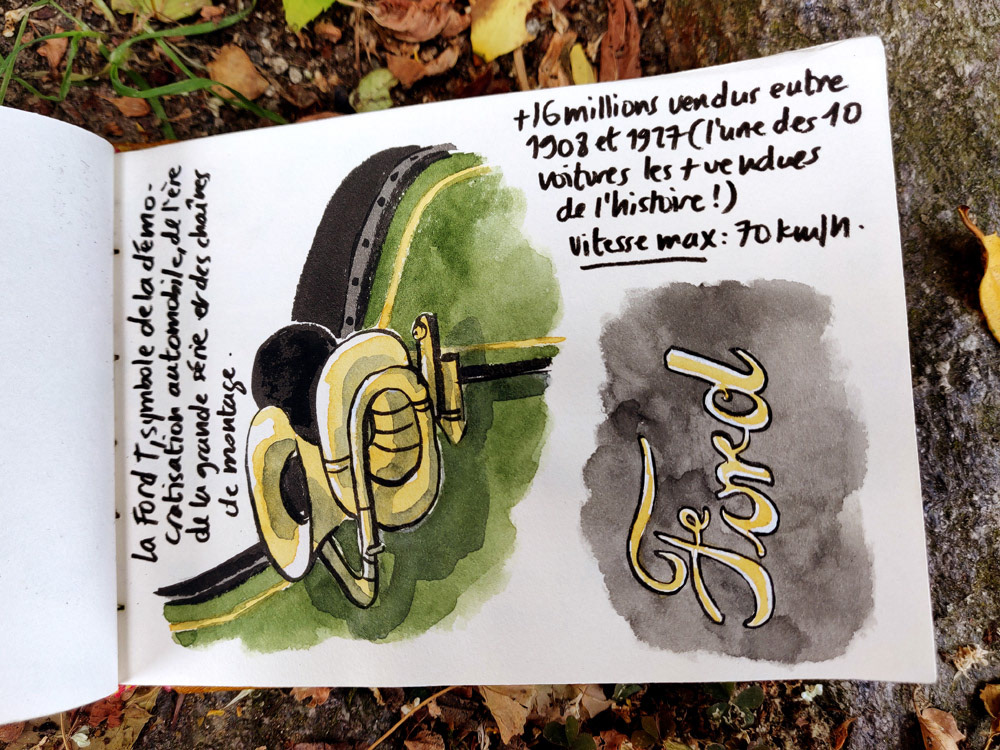 La Ford T, symbole de la démo-
cratisation automobile, de l'ère
de la grande série et des chaînes
de montage.
+16 millions vendus entre
1908 et 1927 (l'une des 10
voitures les + vendues
de l'histoire !)
vitesse max : 70 km/h.
Ford